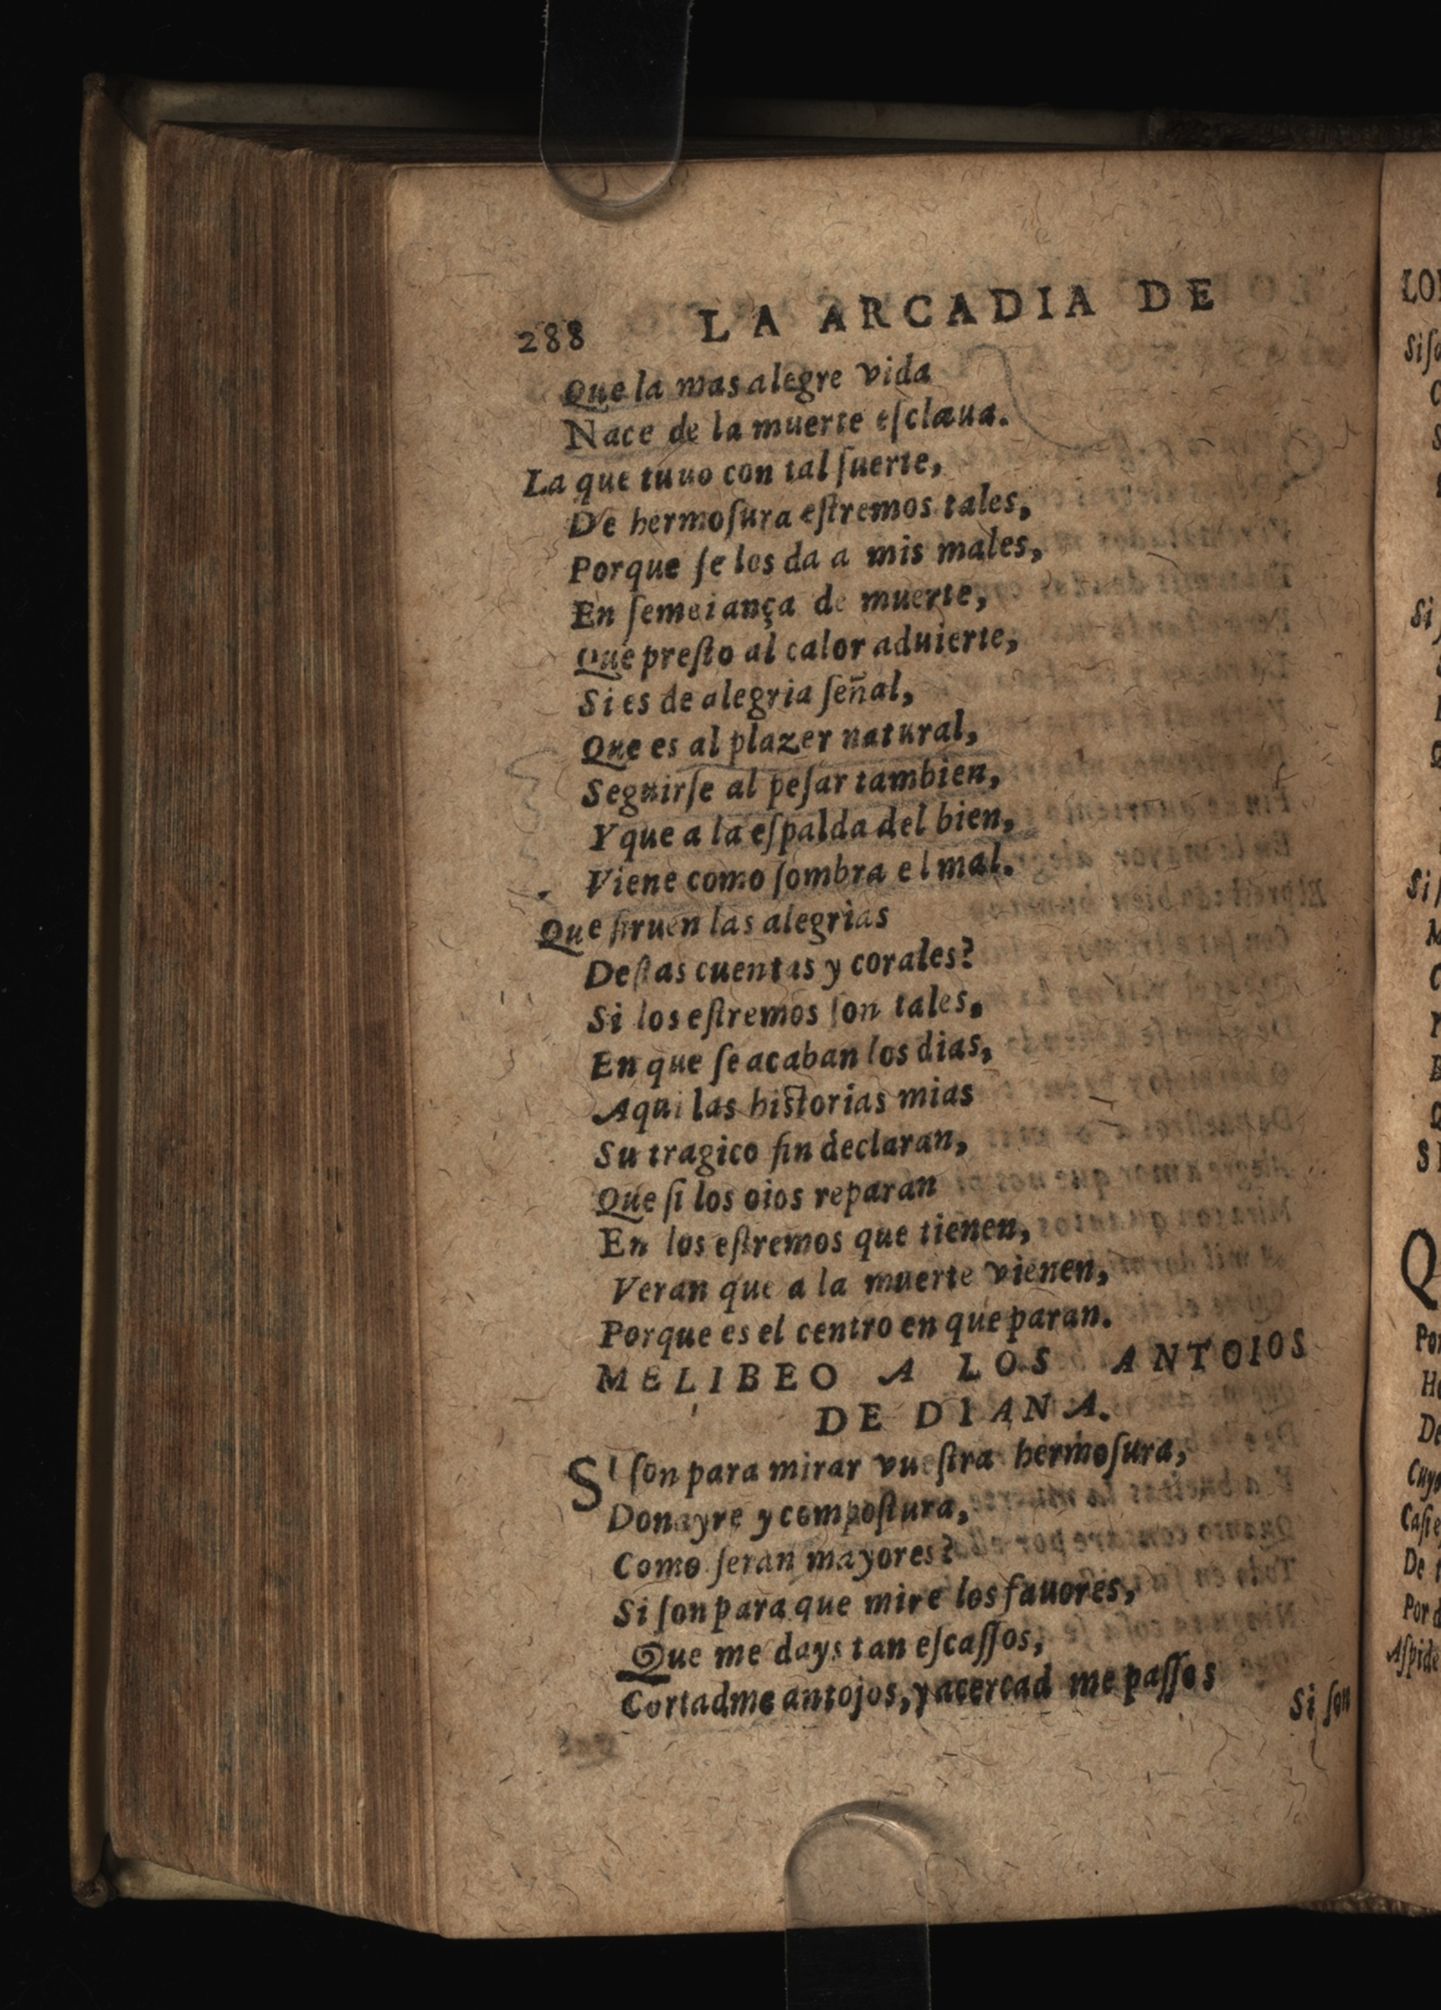 288 LA ARCADIA DE
Que la mas alegre vida
Nace de la muerte eſclaua.
La que tuuo con tal ſuerte,
De hermoſura eſtremos tales,
Porque ſe los da a mis males,
En ſemeiança de muerte,
Que preſto al calor aduierte,
Si es de alegria ſeñal,
Que es al plazer natural,
Seguirſe al peſar tambien,
Y que a la eſpalda del bien,
Viene como ſombra el mal.
Que ſiruen las alegrias
Deſtas cuentas y corales?
Si los eſtremos ſon tales,
En que ſe acaban los dias,
Aqui las historias mias
Su tragico fin declaran,
Que ſi los oios reparan
En los eſtremos que tienen,
Veran que a la muerte vienen,
Porque es el centro en que paran.
MELIBEO A LOS ANTOIOS
DE DIANA.
SI ſon para mirar vueſtra hermoſura,
Donayre y compoſtura,
Como ſeran mayores?
Si ſon para que mire los fauores,
Que me days tan eſcaſſos,
Cortadme antojos, y acercad me paſſos
Si ſon